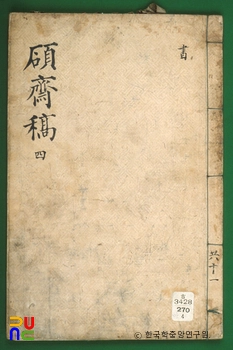 碩齋稿
四
書
共十一
3428
270
4
ⓒ 한국학중앙연구원